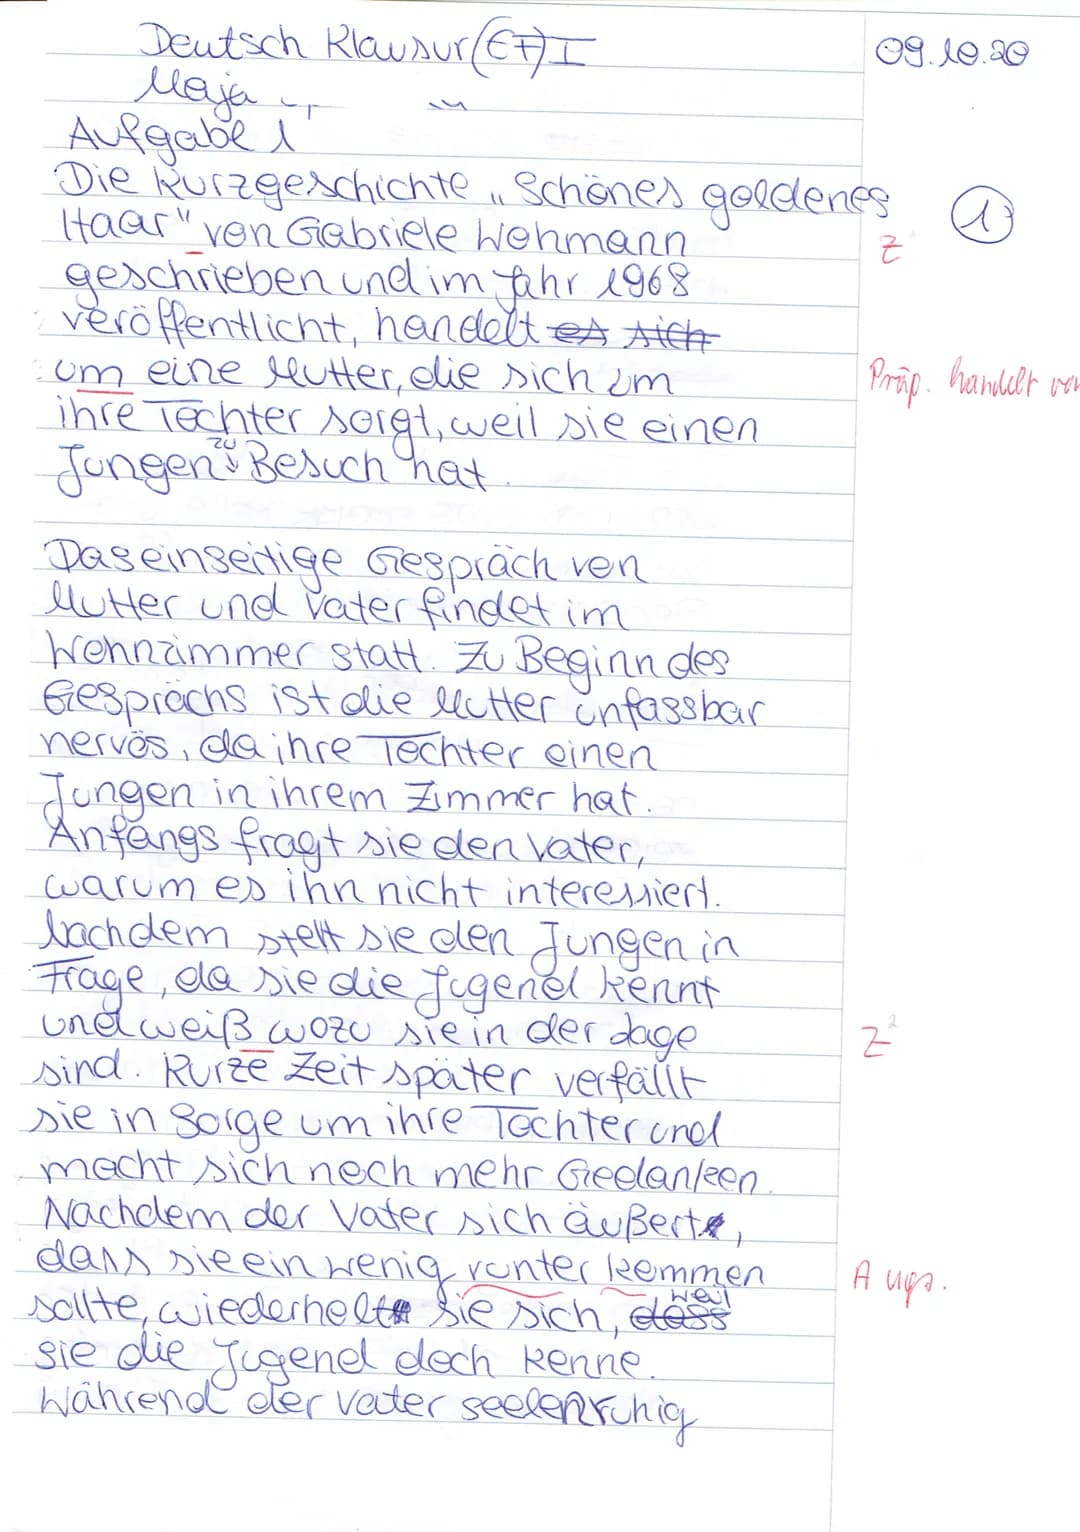 Deutsch Klausur (EF) I 09.10.20
Maja
Aufgabe 1
Die Kurzgeschichte „Schönes goldenes
Haar" von Gabriele Wohmann Z
geschrieben und im Jahr 1968
veröffentlicht, handelt es sich
um eine Mutter, die sich um Präp. handelt von
ihre Tochter sorgt, weil sie einen
Jungen zu Besuch hat.
Das einseitige Gespräch von
Mutter und Vater findet im
Wohnzimmer statt. Zu Beginn des
Gesprächs ist die Mutter unfassbar
nervös, da ihre Tochter einen
Jungen in ihrem Zimmer hat.
Anfangs fragt sie den Vater,
warum es ihn nicht interessiert.
Nachdem stellt sie den Jungen in
Frage, da sie die Jugend kennt
und weiß wozu sie in der Lage Z
sind. Kurze Zeit später verfällt
sie in Sorge um ihre Tochter und
macht sich noch mehr Gedanken.
Nachdem der Vater sich äußert,
dass sie ein wenig runter kommen A ugs.
sollte, wiederholt sie sich, dass weil
sie die Jugend doch kenne.
Während der Vater seelenruhig